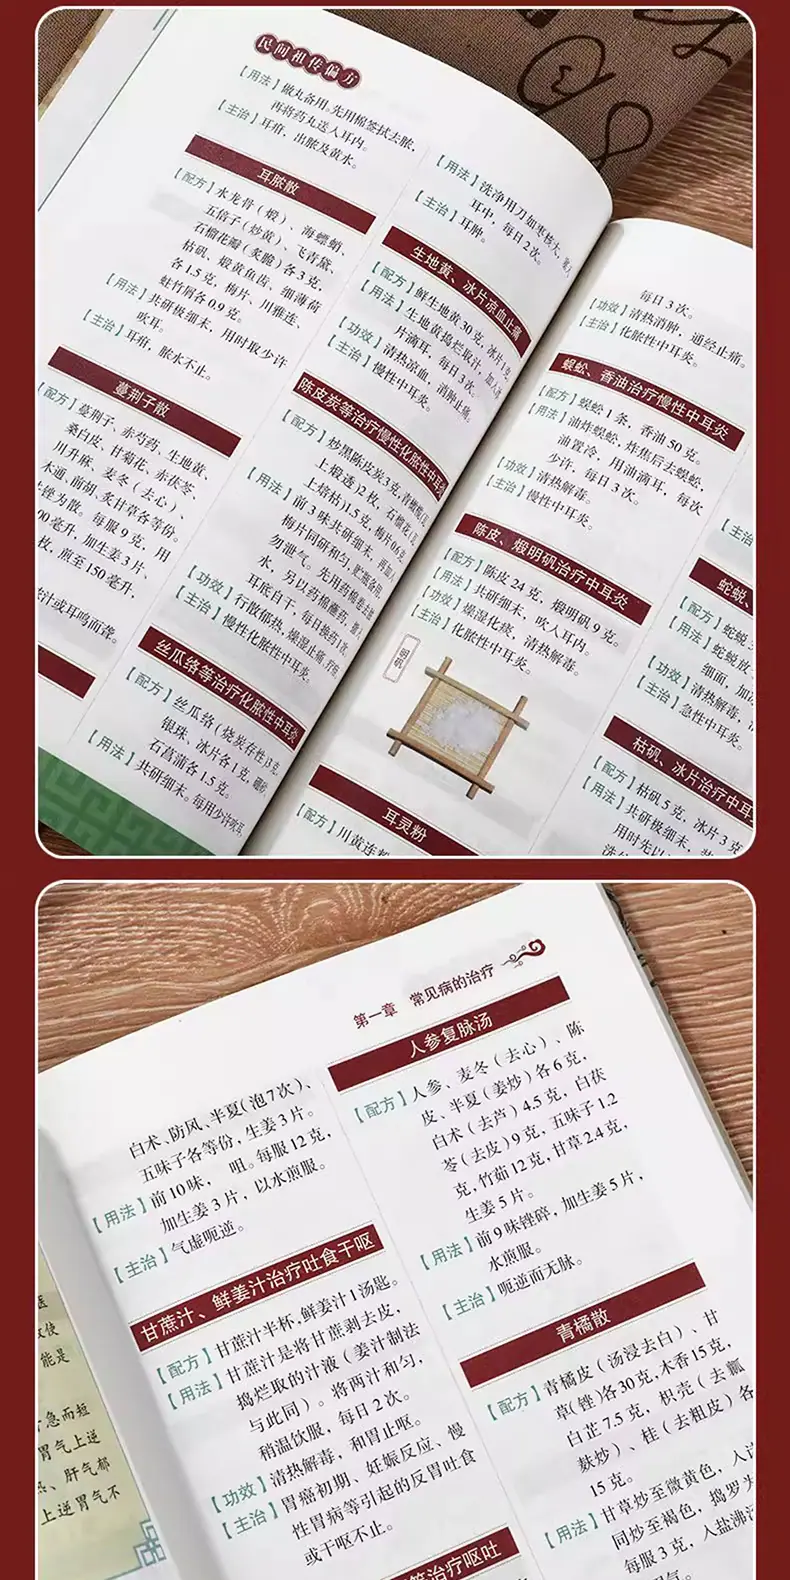 民间祖传偏方
【用法】做丸备用。先用棉签拭去脓,
再将药丸送入耳内。
【主治】耳疳,出脓及黄水。
耳脓散
【配方】水龙骨(煅)、海螵蛸、
五倍子(炒黄)、飞青黛、
石榴花瓣(炙脆)各3克,
枯矾、煅黄鱼齿、细薄荷
各1.5克,梅片、川雅连、
蛀竹屑各0.9克。
【用法】共研极细末,用时取少许
吹耳。
【主治】耳疳,脓水不止。
蔓荆子散
【配方】蔓荆子、赤芍药、生地黄、
桑白皮、甘菊花、赤茯苓、
川升麻、麦冬(去心)、
木通、前胡、炙甘草各等份。
锉为散。每服9克,用
00毫升,加生姜3片、
枚,煎至150毫升,
汁或耳鸣而聋。
【用法】洗净用刀如枣核大,塞入
耳中,每日2次。
【主治】耳肿。
生地黄、冰片凉血止痛
【配方】鲜生地黄30克,冰片1克。
【用法】生地黄捣烂取汁,加入冰
片滴耳,每日3次。
【功效】清热凉血,消肿止痛。
【主治】慢性中耳炎。
陈皮炭等治疗慢性化脓性中耳炎
【配方】炒黑陈皮炭3克,青橄榄(瓦
上煅透)2枚,石榴花(瓦
上焙枯)1.5克,梅片0.6克。
【用法】前3味共研细末,再加入
梅片同研和匀,贮瓶备用,
勿泄气。先用药棉卷去脓
水,另以药棉蘸药,塞入
耳底自干,每日换药1次。
【功效】行散郁热,燥湿止痛,
【主治】慢性化脓性中耳炎。
丝瓜络等治疗化脓性中耳炎
【配方】丝瓜络(烧炭存性)3克,
银珠、冰片各1克,硼砂、
石菖蒲各1.5克。
【用法】共研细末。每用少许吹耳,
每日3次。
【功效】清热消肿,通经止痛。
【主治】化脓性中耳炎。
蜈蚣、香油治疗慢性中耳炎
【配方】蜈蚣1条,香油50克。
【用法】油炸蜈蚣,炸焦后去蜈蚣,
油置冷,用油滴耳,每次
少许,每日3次。
【功效】清热解毒。
【主治】慢性中耳炎。
陈皮、煅明矾治疗中耳炎
【配方】陈皮24克,煅明矾9克。
【用法】共研细末,吹入耳内。
【功效】燥湿化痰,清热解毒。
【主治】化脓性中耳炎。
明矾
耳灵粉
【配方】川黄连
【主治
蛇蜕、
【配方】蛇蜕
【用法】蛇蜕放
细面,加
【功效】清热解毒,
【主治】急性中耳炎。
枯矾、冰片治疗中耳
【配方】枯矾5克,冰片3克
【用法】共研极细末,
用时先以
第一章 常见病的治疗
白术、防风、半夏(泡7次)、
五味子各等份,生姜3片。
【用法】前10味, 咀。每服12克,
加生姜3片,以水煎服。
【主治】气虚呃逆。
甘蔗汁、鲜姜汁治疗吐食干呕
【配方】甘蔗汁半杯,鲜姜汁1汤匙。
【用法】甘蔗汁是将甘蔗剥去皮,
捣烂取的汁液(姜汁制法
与此同)。将两汁和匀,
稍温饮服,每日2次。
【功效】清热解毒,和胃止呕。
【主治】胃癌初期、妊娠反应、慢
性胃病等引起的反胃吐食
或干呕不止。
等治疗呕吐
人参复脉汤
【配方】人参、麦冬(去心)、陈
皮、半夏(姜炒)各6克,
白术(去芦)4.5克,白茯
苓(去皮)9克,五味子1.2
克,竹茹12克,甘草2.4克,
生姜5片。
【用法】前9味锉碎,加生姜5片,
水煎服。
【主治】呃逆而无脉。
青橘散
【配方】青橘皮(汤浸去白)、甘
草(锉)各30克,木香15克,
白芷7.5克,枳壳(去瓤
麸炒)、桂(去粗皮)各
15克。
【用法】甘草炒至微黄色,入
同炒至褐色,捣罗为
每服3克,入盐沸
医
使
能是
急而短
胃气上逆
、肝气郁
上逆胃气不